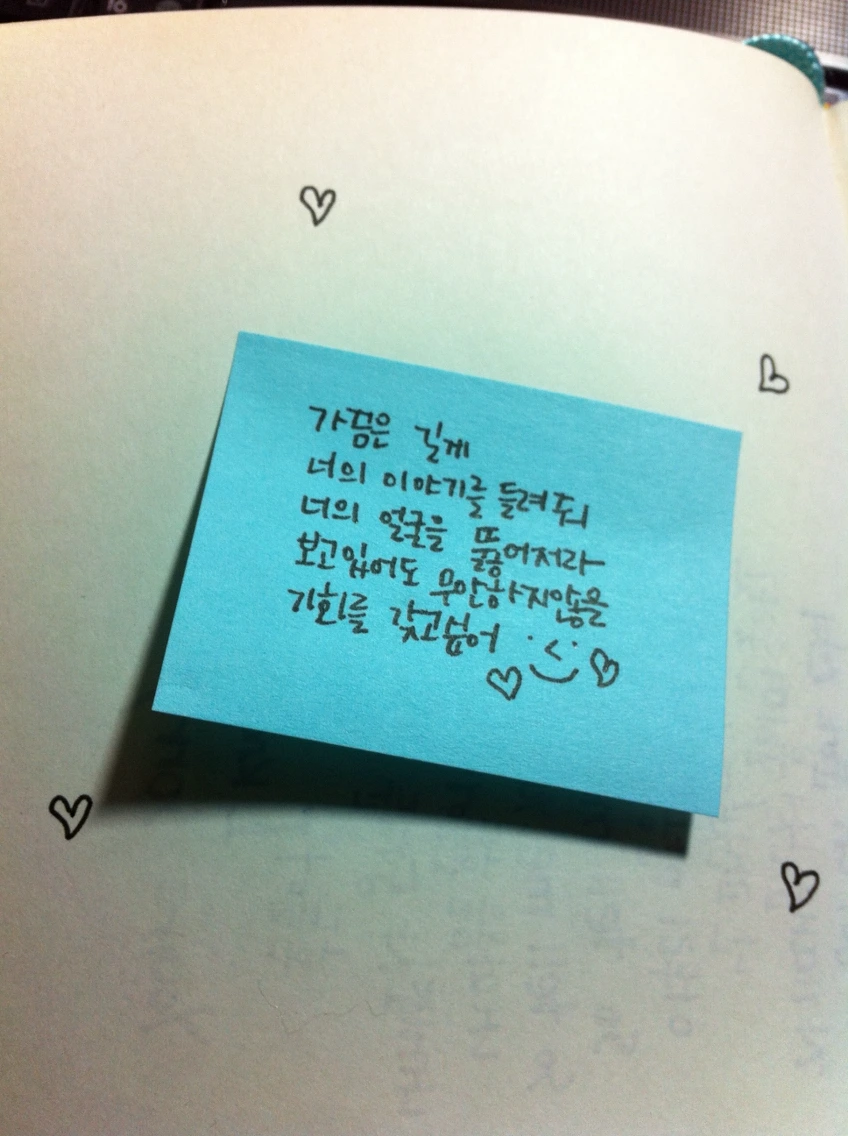 가끔은 길게
너의 이야기를 들려줘
너의 얼굴을 뚫어져라
보고있어도 무안하지않을
기회를 갖고싶어